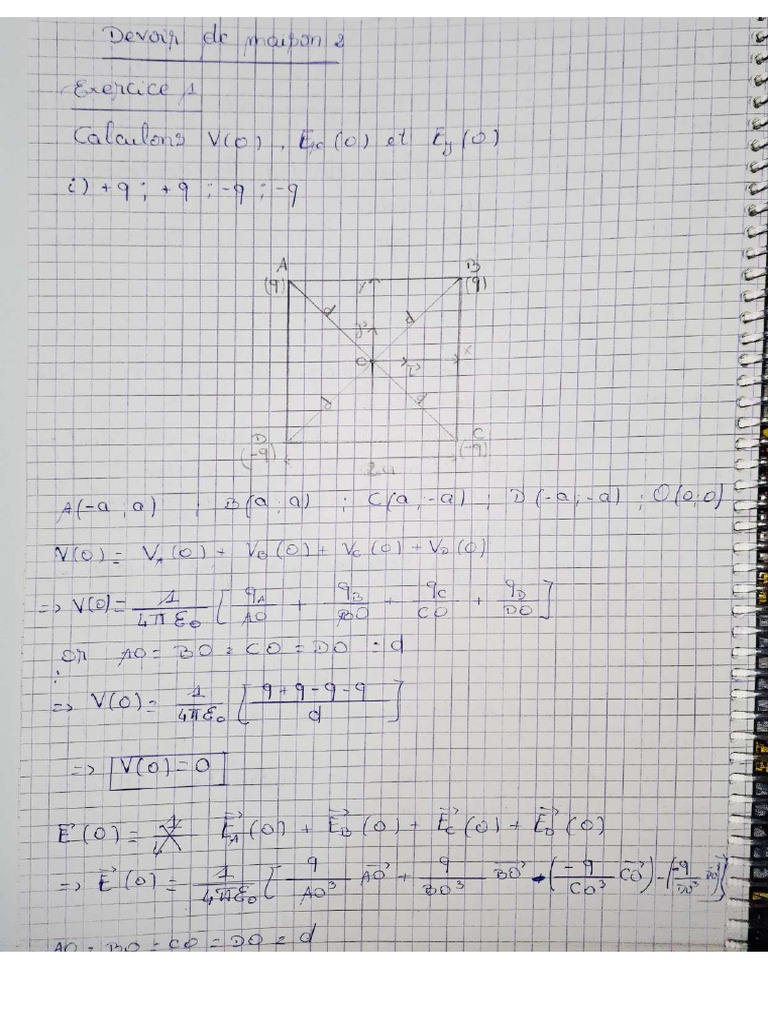 Devoir de maison 2
Exercice 1
Calculons V(0), Ex(0) et Ey(0)
i) +q ; +q ; -q ; -q
A B
(q) (q)
d d
O i x
d d
D C
(-q) (-q)
2a
A(-a ; a) ; B(a ; a) ; C(a ; -a) ; D(-a ; -a) ; O(0;0)
V(0) = VA(0) + VB(0) + VC(0) + VD(0)
=> V(0) = 1/4πε0 [ qA/AO + qB/BO + qC/CO + qD/DO ]
or AO = BO = CO = DO = d
=> V(0) = 1/4πε0 [ (q+q-q-q)/d ]
=> V(0) = 0
E(0) = EA(0) + EB(0) + EC(0) + ED(0)
=> E(0) = 1/4πε0 [ q/AO³ AO + q/BO³ BO - (-q/CO³ CO) - (-q/DO³ DO) ]
AO = BO = CO = DO = d